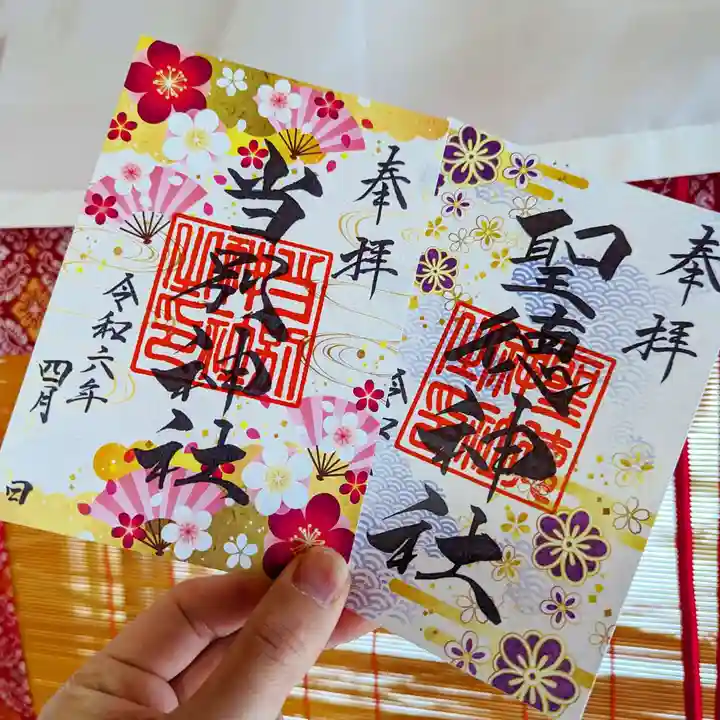 奉拝
聖徳神社
奉拝
当別神社
令和六年
四月
日